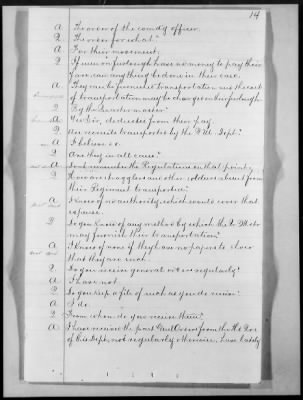 14
A The order of the comd'g officer.
Q The order for what?
A For their movement.
Q If men on furlough have no money to pay their
fare can any thing be done in their case.
A They can be furnished transportation and the cost
of transportation may be charged on their furlough.
Q By the Quartermaster
A Yes Sir, deducted from their pay.
Q Are recruits transported by the Dept?
A I believe so.
Q Are they in all cases?
A remember the Regulations on that point.
Q How are stragglers and other soldiers absent from
their Regiment transported?
A I know of no authority which would cover that
expense.
Q Do you know of any method by which the
may furnish their transportation?
A I know of none if they have no papers to show
that they are such.
Q Do you receive general orders regularly?
A I have not.
Q Do you keep a file of such as you do receive?
A I do.
Q From whom do you receive them?
A I have received the Orders from the Hd Qrs
of his Dept, not regularly